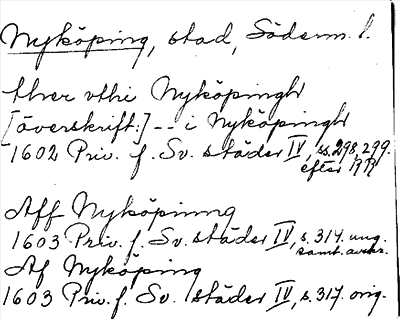 Nyköping, stad, Söderm. l.
threr vthi Nyköpingh
[överskrift:] -- i Nyköpingh
1602 Priv. f. Sv. städer IV, ss. 298, 299.
efter RR
Aff Nyköpinng
1603 Priv. f. Sv. städer IV, s. 314. ung.
samt. avskr.
Af Nyköping
1603 Priv. f. Sv. städer IV, s. 317. orig.